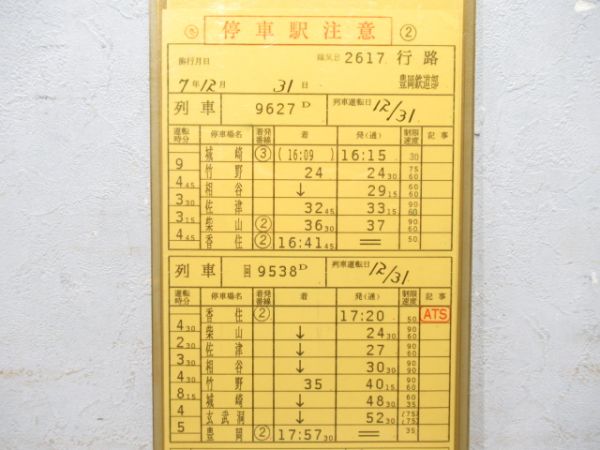 停車駅注意 ②
施行月日 臨気B 2617 行路
7年12月 31日 豊岡鉄道部
列車 9627D 列車運転日 12/31
運転時分 停車場名 着発番線 着 発(通) 制限速度 記事
城崎 ③ (16:09) 16:15 30
9 竹野 24 24 30 75 60
4 45 相谷 ↓ 29 15 60 60
3 30 佐津 32 45 33 15 90 60
3 15 柴山 ② 36 30 37 90 60
4 45 香住 ② 16:41 45 = 50
列車 回9538D 列車運転日 12/31
運転時分 停車場名 着発番線 着 発(通) 制限速度 記事
香住 ② 17:20 50 ATS
4 30 柴山 ↓ 24 30 90 60
2 30 佐津 ↓ 27 90 60
3 30 相谷 ↓ 30 30 90 90
4 30 竹野 35 40 15 90 60
8 15 城崎 ↓ 48 30 60 35
4 玄武洞 ↓ 52 30 (75) (75)
5 豊岡 ② 17:57 30 = 35